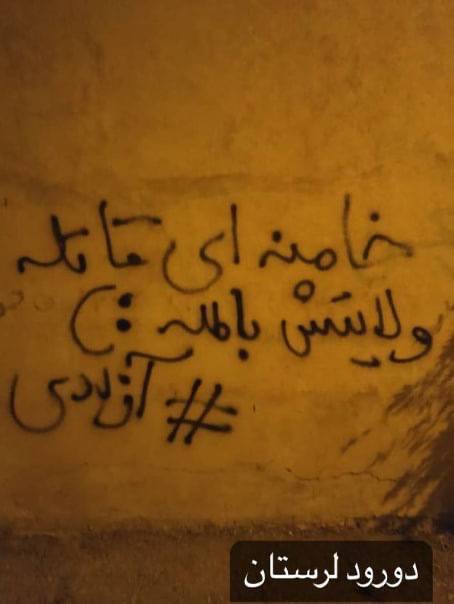 خامنه ای قاتله
ولایتش باطله :)
#آزادی
دورود لرستان